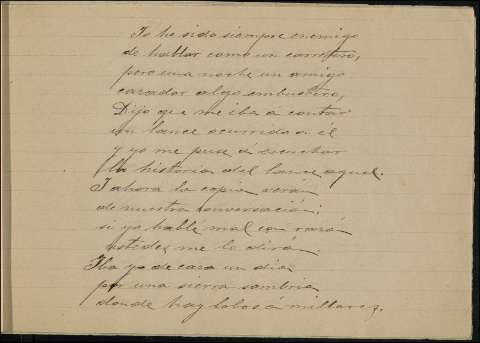 Yo he sido siempre enemigo
de hablar como un carretero,
pero una noche un amigo
cazador algo embustero,
Dijo que me iba á contar
un lance ocurrido a él
y yo me puse á escuchar
la historia del lance aquel.
I ahora la copia verán
de nuestra conversación;
si yo hablé mal con razón
ustedes me lo dirán
Iba yo de caza un dia
por una sierra sombria
donde hay lobos á millares,